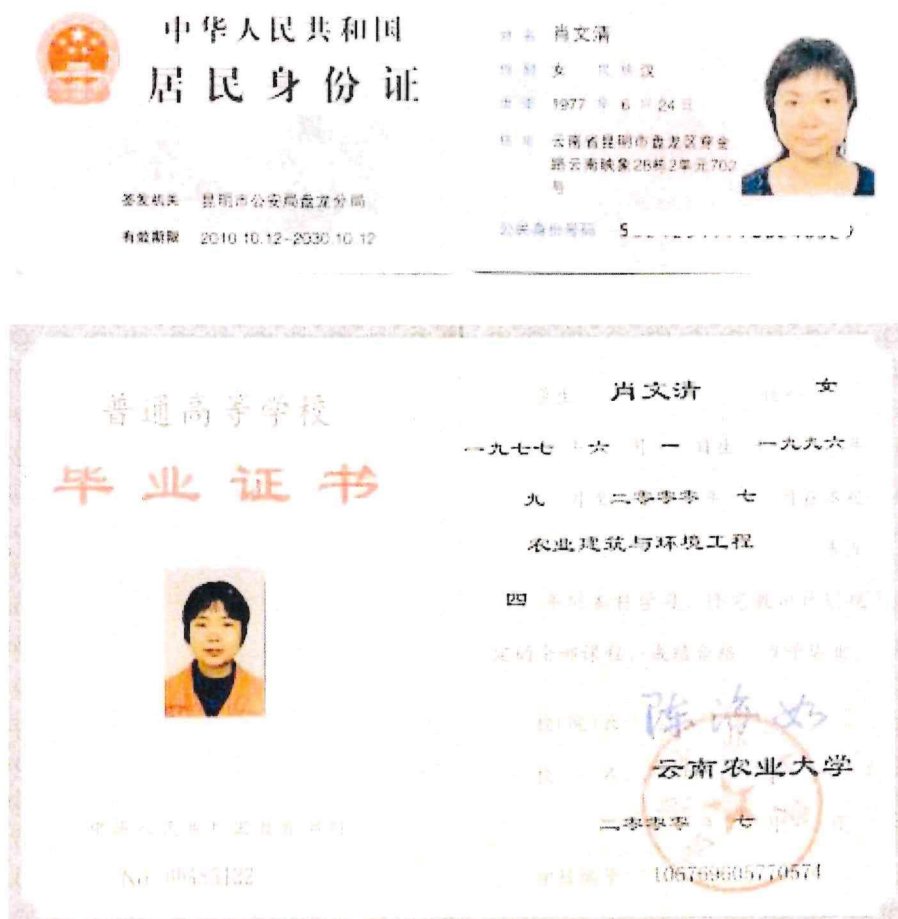 中华人民共和国
居民身份证
签发机关 昆明市公安局盘龙分局
有效期限 2010.10.12-2030.10.12
姓名 肖文清
性别 女 民族 汉
出生 1977 年 6 月 24 日
住址 云南省昆明市盘龙区穿金
路云南映象28栋2单元702
号
公民身份号码
普通高等学校
毕业证书
学生 肖文清 性别 女
一九七七 年 六 月 一 日生 一九九六 年
九 月至 二零零零 年 七 月在本校
农业建筑与环境工程 专业
四 年制本科学习,修完教学计划规
定的全部课程,成绩合格,准予毕业。
校(院)长 陈海如
校 名 云南农业大学
二零零零 年 七 月
中华人民共和国教育部印制
No 00485122
学校编号 106769605770574